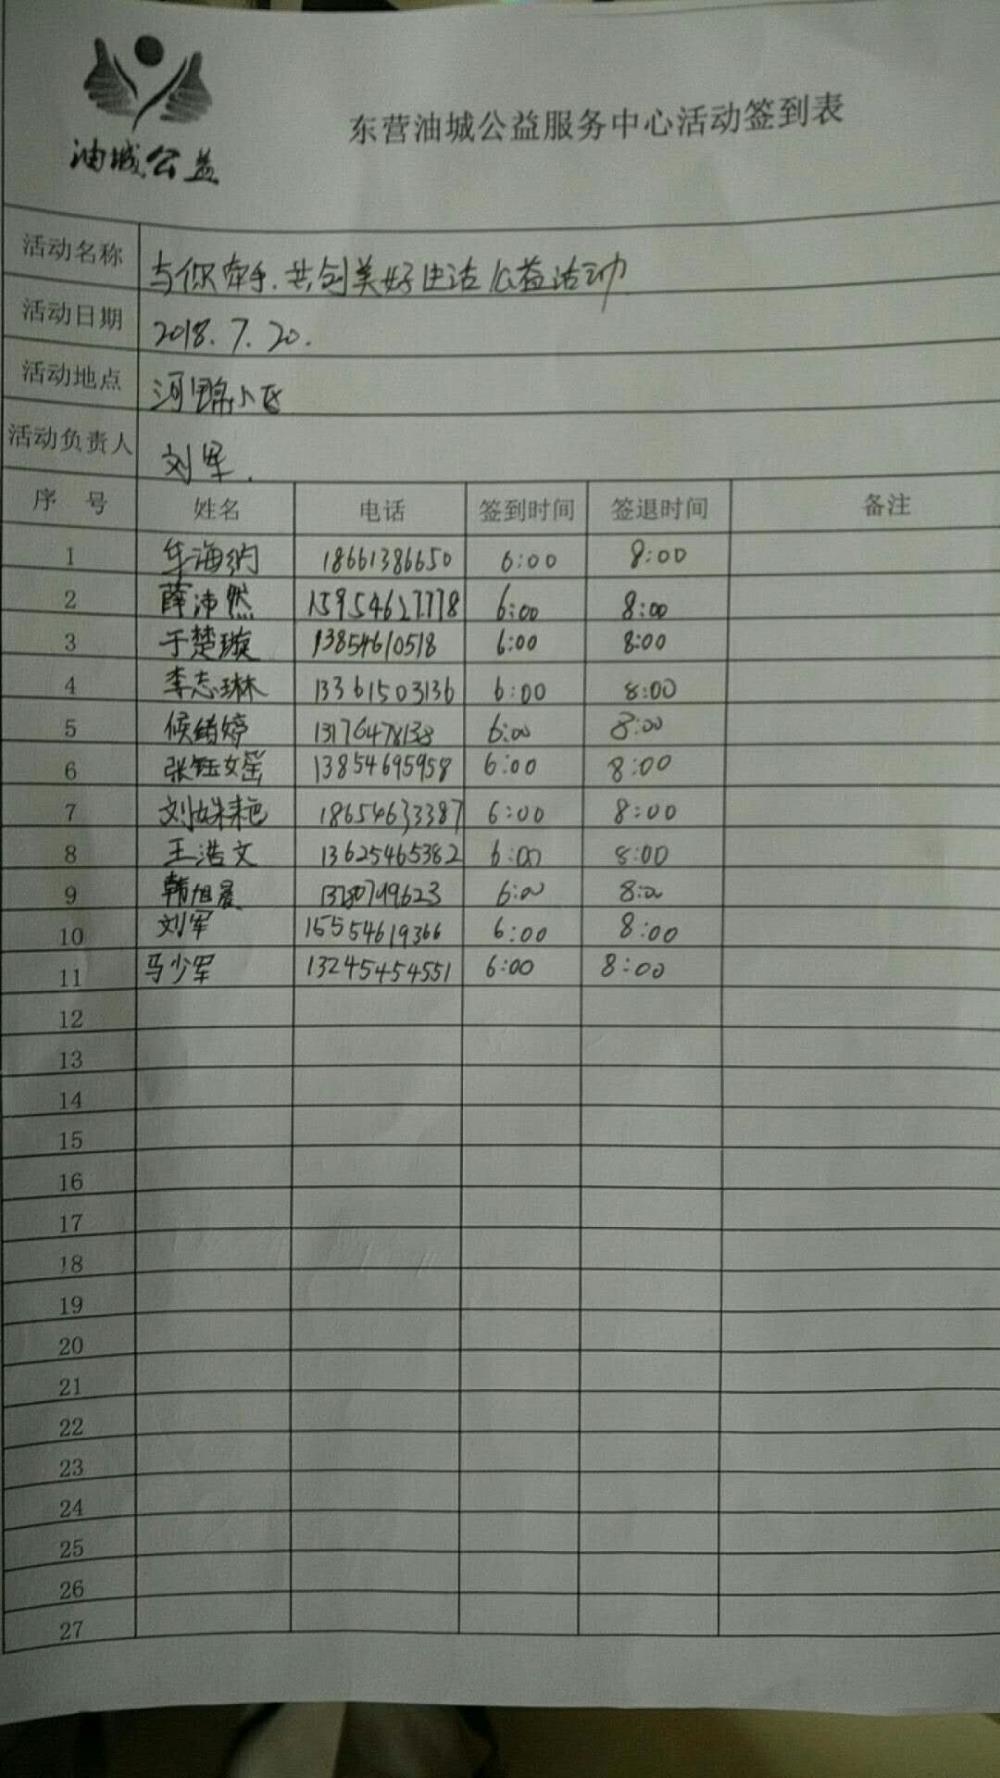 油城公益
东营油城公益服务中心活动签到表
活动名称 与你牵手.共创美好生活公益活动
活动日期 2018.7.20.
活动地点 河锦小区
活动负责人 刘军.
序 号 姓名 电话 签到时间 签退时间 备注
1 牟海纳 18661386650 6:00 8:00
2 薛沛然 15954627778 6:00 8:00
3 于楚璇 13854610518 6:00 8:00
4 李志琳 13361503136 6:00 8:00
5 6:00 8:00
6 张钰瑶 13854695958 6:00 8:00
7 刘姝耙 18654633387 6:00 8:00
8 王浩文 13625465382 6:00 8:00
9 韩旭晨 6:00 8:00
10 刘军 15554619366 6:00 8:00
11 马少军 13245454551 6:00 8:00
12
13
14
15
16
17
18
19
20
21
22
23
24
25
26
27